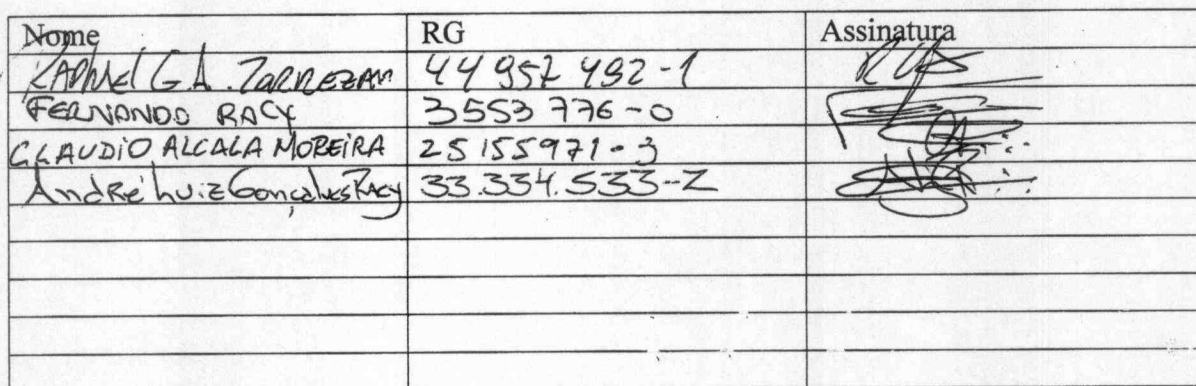 Nome RG Assinatura
RAPHAEL G.A. TORREZAN 44 957 492-1
FERNANDO RACY 3553 776-0
CLAUDIO ALCALA MOREIRA 25155971-3
André Luiz Gonçalves Racy 33.334.533-2